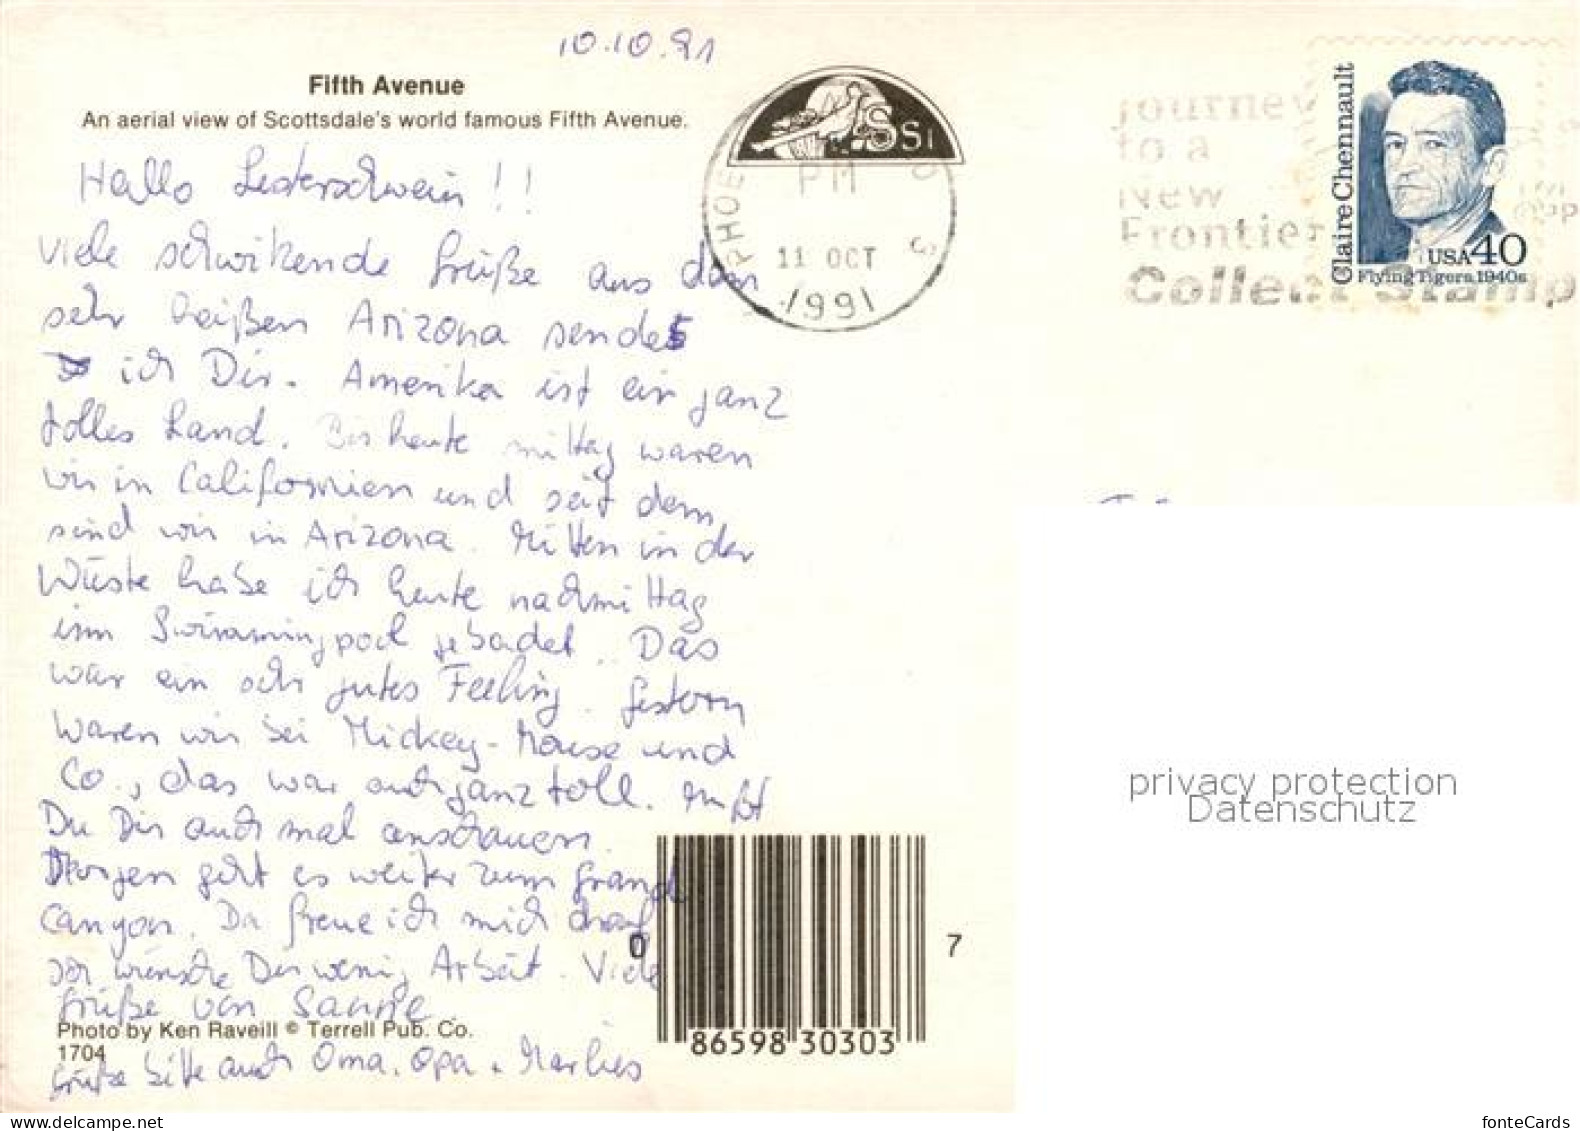 10.10.91
Fifth Avenue
An aerial view of Scottsdale's world famous Fifth Avenue.
Hallo Lesterschwein!!
viele schwitzende Grüße aus dem
sehr heißen Arizona sende
ich Dir. Amerika ist ein ganz
tolles Land. Bis heute mittag waren
wir in Californien und seit dem
sind wir in Arizona. Mitten in der
Wüste habe ich heute nachmittag
im Swimmingpool gebadet. Das
war ein sehr gutes Feeling. Gestern
waren wir bei Mickey-Mouse und
Co., das war auch ganz toll. Mußt
Du Dir auch mal anschauen.
Morgen geht es weiter zum Grand
Canyon. Da freue ich mich drauf
Ich wünsche Dir wenig Arbeit. Viele
Grüße von Sanne
Photo by Ken Raveill © Terrell Pub. Co.
1704
Grüße bitte auch Oma, Opa + Marlies
SSI
PHOE
PM
11 OCT
1991
Journey
to a
New
Frontier
Collect Stamp
Claire Chennault
USA 40
Flying Tigers, 1940s
privacy protection
Datenschutz
0 86598 30303 7
fonteCards